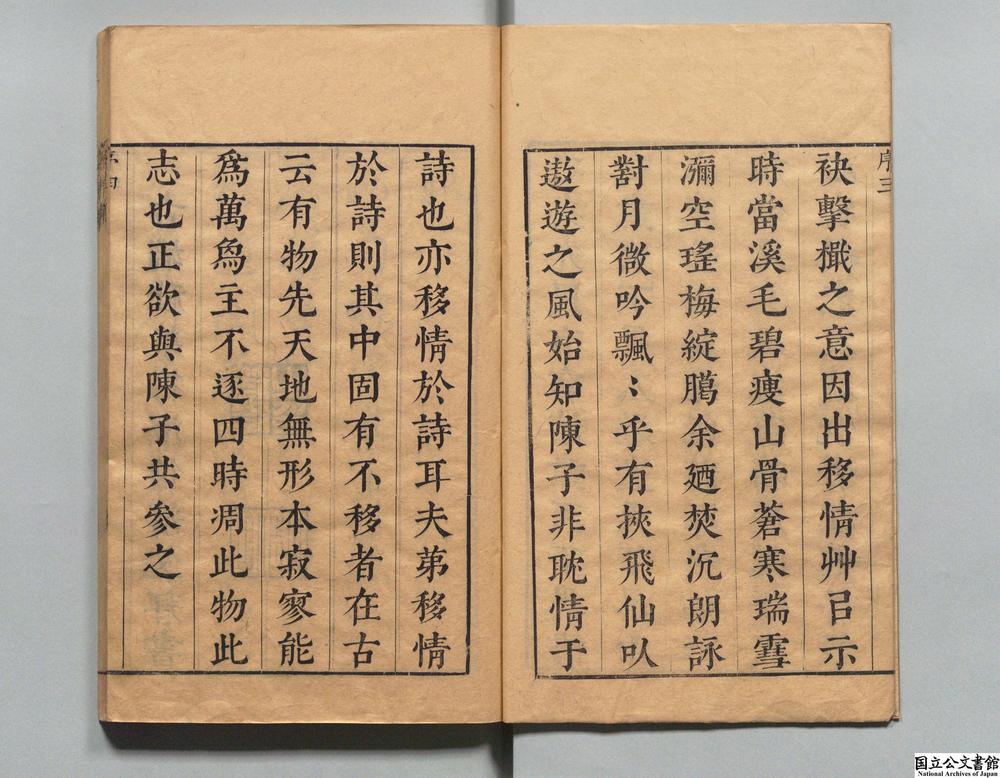 序三
袂擊檝之意因出移情艸㠯示
時當溪毛碧瘦山骨蒼寒瑞雪
瀰空瑤梅綻臈余廼焚沉朗詠
對月微吟飄〻乎有挾飛仙㕥
遨遊之風始知陳子非耽情于
詩也亦移情於詩耳夫弟移情
於詩則其中固有不移者在古
云有物先天地無形本寂寥能
爲萬爲主不逐四時凋此物此
志也正欲與陳子共參之
国立公文書館
National Archives of Japan